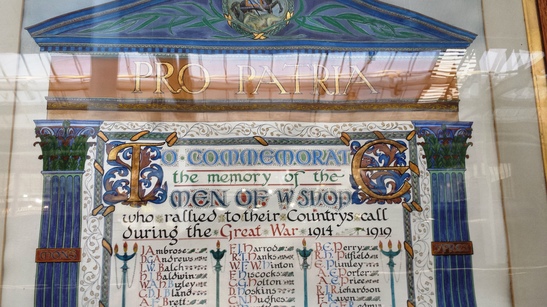 PRO PATRIA
TO COMMEMORATE
the memory of the
MEN OF W SHOP
who rallied to their Countrys call
during the Great War 1914 1919
J. Ambrose E.J. Harrod B.C. Perry
G. Andrews R. Hanks R.H. Pitfield
L.W. Balch W.F.W. Hinton S. Plumley
Hiscocks A.E. Porter
C.G. Holton J. Price
Hoskins R. Richardson
V. Brett Hughes F. Raven